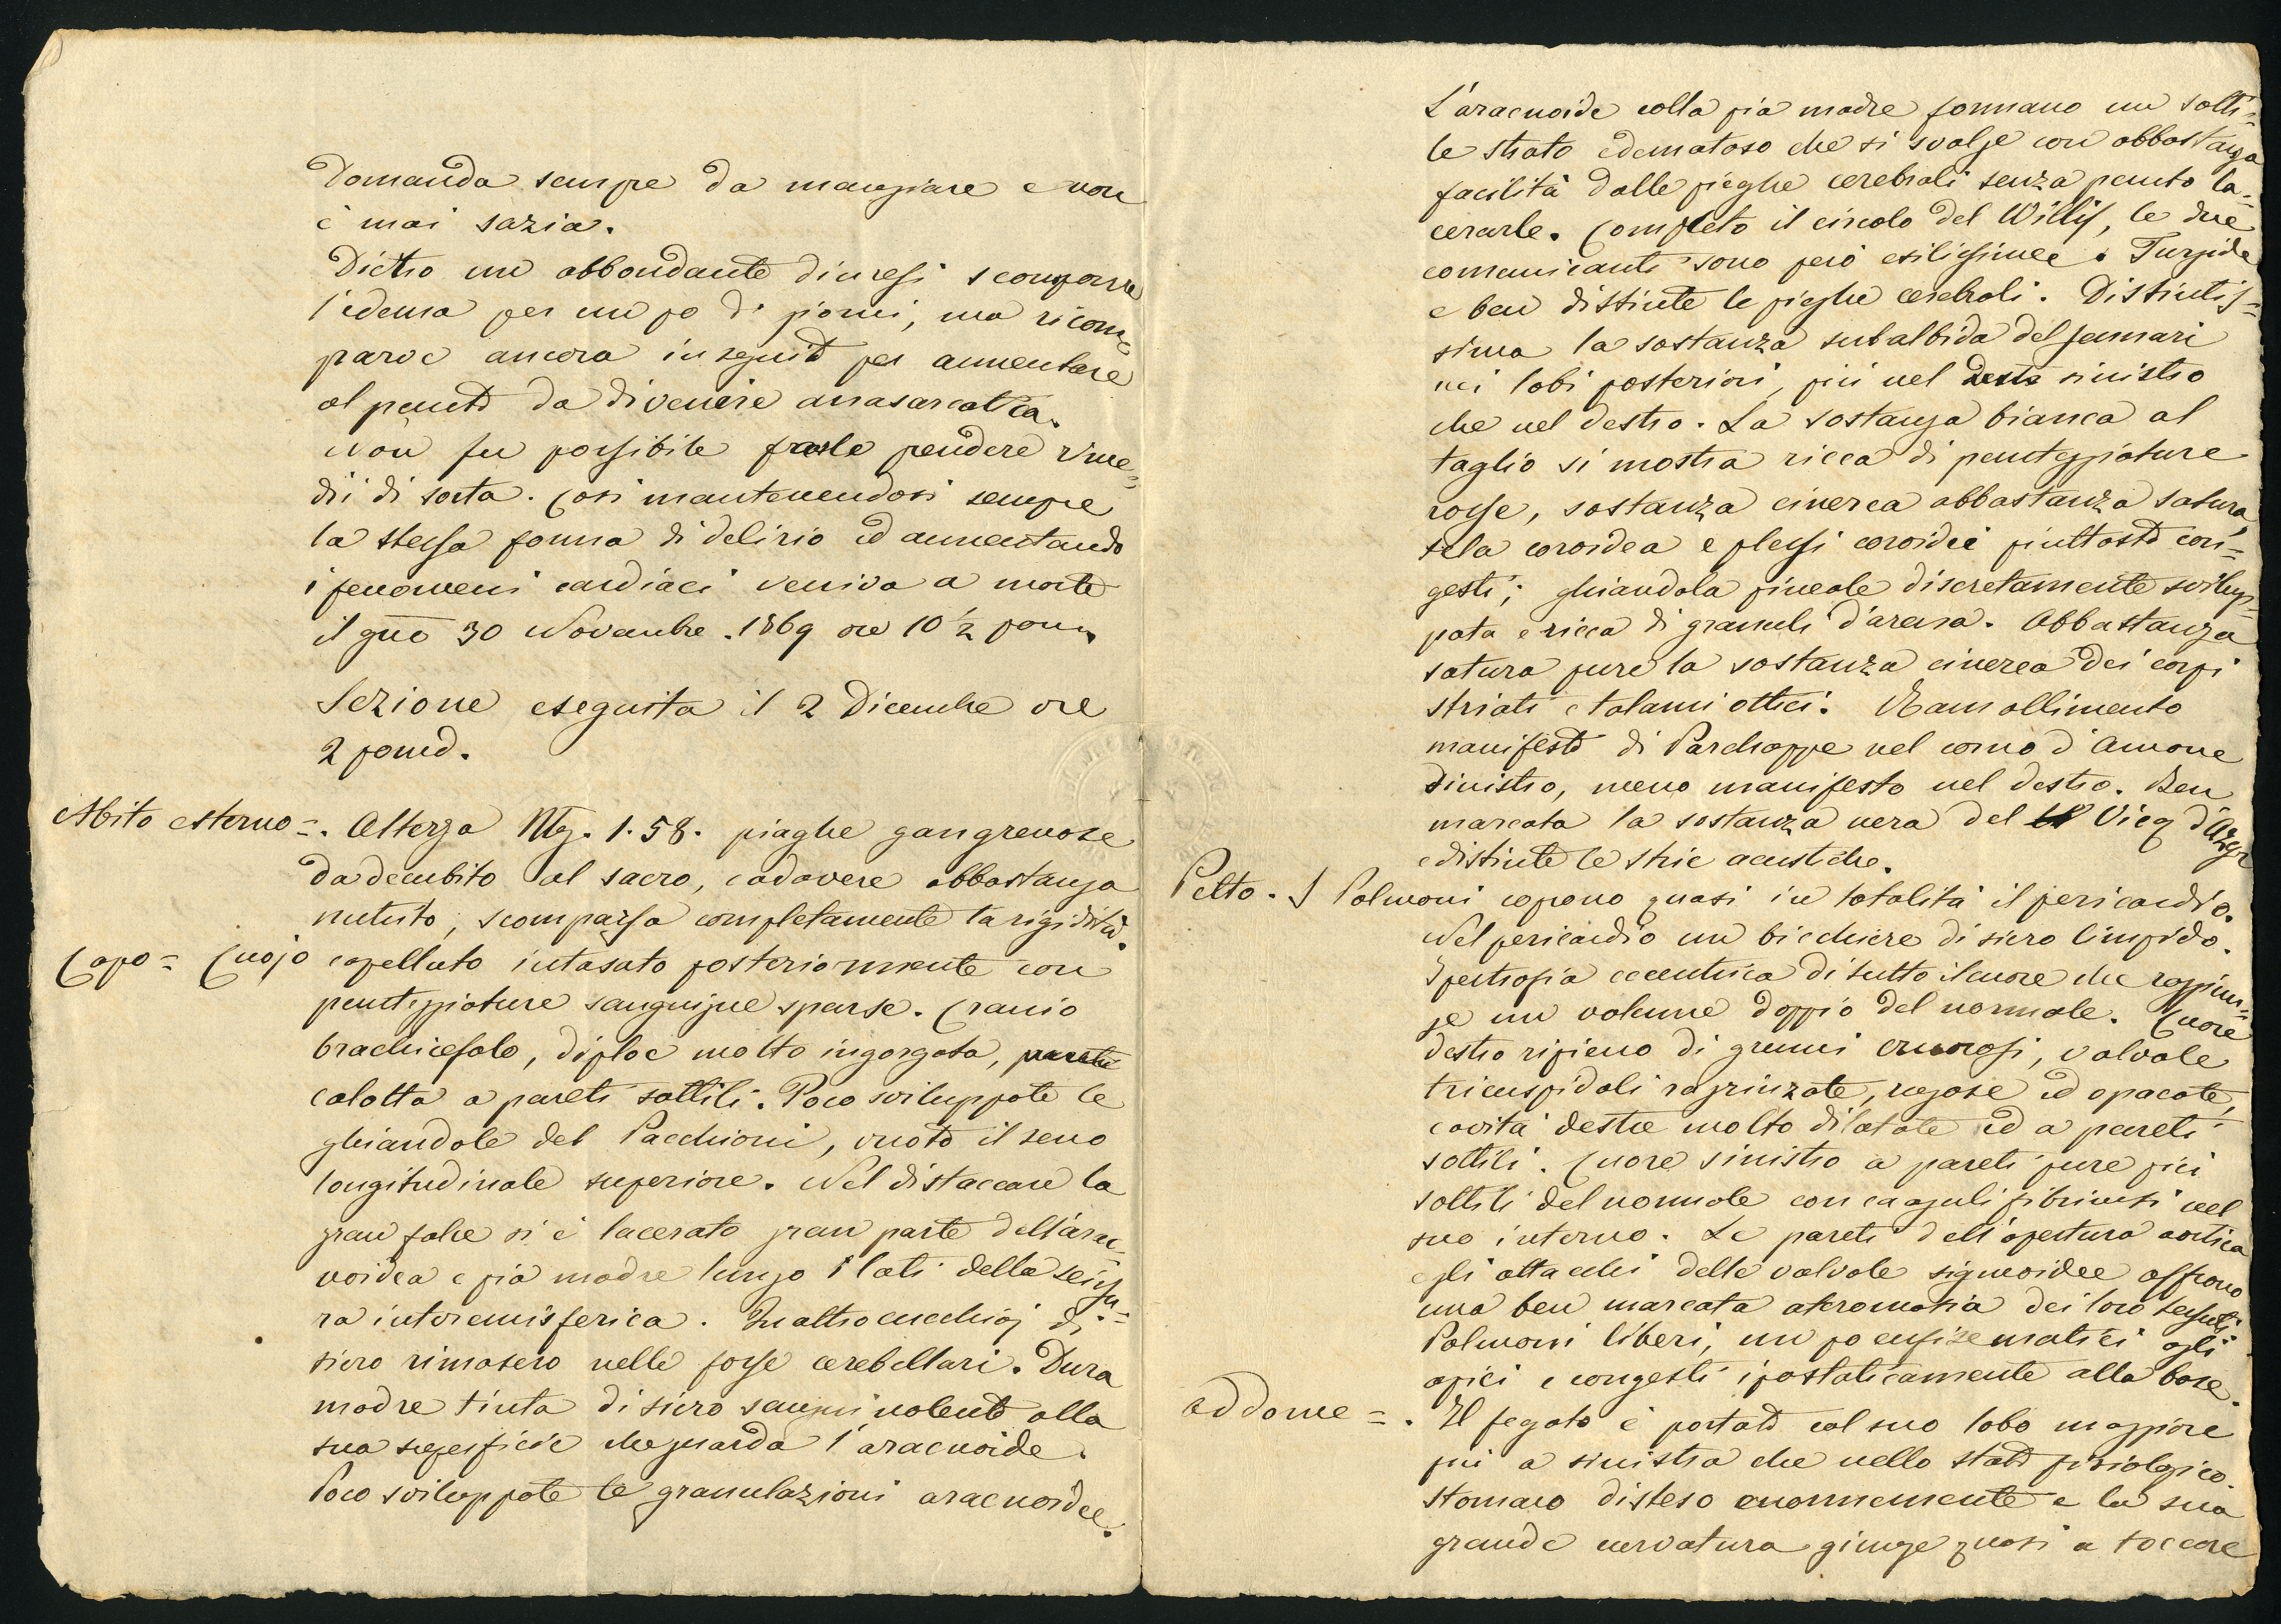 Domanda sempre da mangiare e non
è mai sazia.
Dietro un abbondante diuresi scomparve
l'edema per un po di giorni, ma ricom=
parve ancora in seguito per aumentare
al punto da divenire anasarcatica.
Non fu possibile farle prendere rime=
dii di sorta. Così mantenendosi sempre
la stessa forma di delirio ed aumentando
i fenomeni cardiaci veniva a morte
il gno 30 Novembre 1869 ore 10 1/2 pom.
Sezione eseguita il 2 Dicembre ore
2 pomd.
Abito esterno =. Altezza M. 1.58. piaghe gangrenose
da decubito al sacro, cadavere abbastanza
nutrito, scomparsa completamente la rigidità.
Capo = Cuojo capelluto intasato posteriormente con
punteggiature sanguigne sparse. Cranio
brachicefalo, diploe molto ingorgata, parete
calotta a pareti sottili. Poco sviluppate le
ghiandole del Pacchioni, vuoto il seno
longitudinale superiore. Nel distaccare la
gran falce si è lacerato gran parte dell'arac=
noidea e pia madre lungo i lati della scissu=
ra interemisferica. Quattro cucchiaj di
siero rimasero nelle fosse cerebellari. Dura
madre tinta di siero sanguinolento alla
sua superficie che guarda l'aracnoide.
Poco sviluppate le granulazioni aracnoidee.
L'aracnoide colla pia madre formano un sotti=
le strato edematoso che si svolge con abbastanza
facilità dalle pieghe cerebrali senza punto la=
cerarle. Completo il circolo del Willis, le due
comunicanti sono però esilissime. Turgide
e ben distinte le pieghe cerebrali. Distintis=
sima la sostanza subalbida del Jennari
nei lobi posteriori, più nel destro sinistro
che nel destro. La sostanza bianca al
taglio si mostra ricca di punteggiature
rosse, sostanza cinerea abbastanza satura,
tela coroidea e plessi coroidei piuttosto con=
gesti; ghiandola pineale discretamente svilup=
pata e ricca di granuli d'arena. Abbastanza
satura pure la sostanza cinerea dei corpi
striati e talami ottici. Ramollimento
manifesto di Parchappe nel corno d'Amone
sinistro, meno manifesto nel destro. Ben
marcata la sostanza nera del Vicq d'Azyr
e distinte le strie acustiche.
Petto. I Polmoni coprono quasi in totalità il pericardio.
Nel pericardio un bicchiere di siero limpido.
Ipertrofia eccentrica di tutto il cuore che raggiun=
ge un volume doppio del normale. Cuore
destro ripieno di grumi cruorosi, valvole
tricuspidali raggrinzate, rugose ed opacate,
cavità destre molto dilatate ed a pareti
sottili. Cuore sinistro a pareti pure più
sottili del normale con coaguli fibrinosi nel
suo interno. Le pareti dell'apertura aortica
e gli attacchi delle valvole sigmoidee offrono
una ben marcata ateromasia dei loro tessuti.
Polmoni liberi, un po enfisematici agli
apici e congesti ipostaticamente alla base.
addome =. Il fegato è portato col suo lobo maggiore
più a sinistra che nello stato fisiologico.
Stomaco disteso enormemente e la sua
grande curvatura giunge quasi a toccare